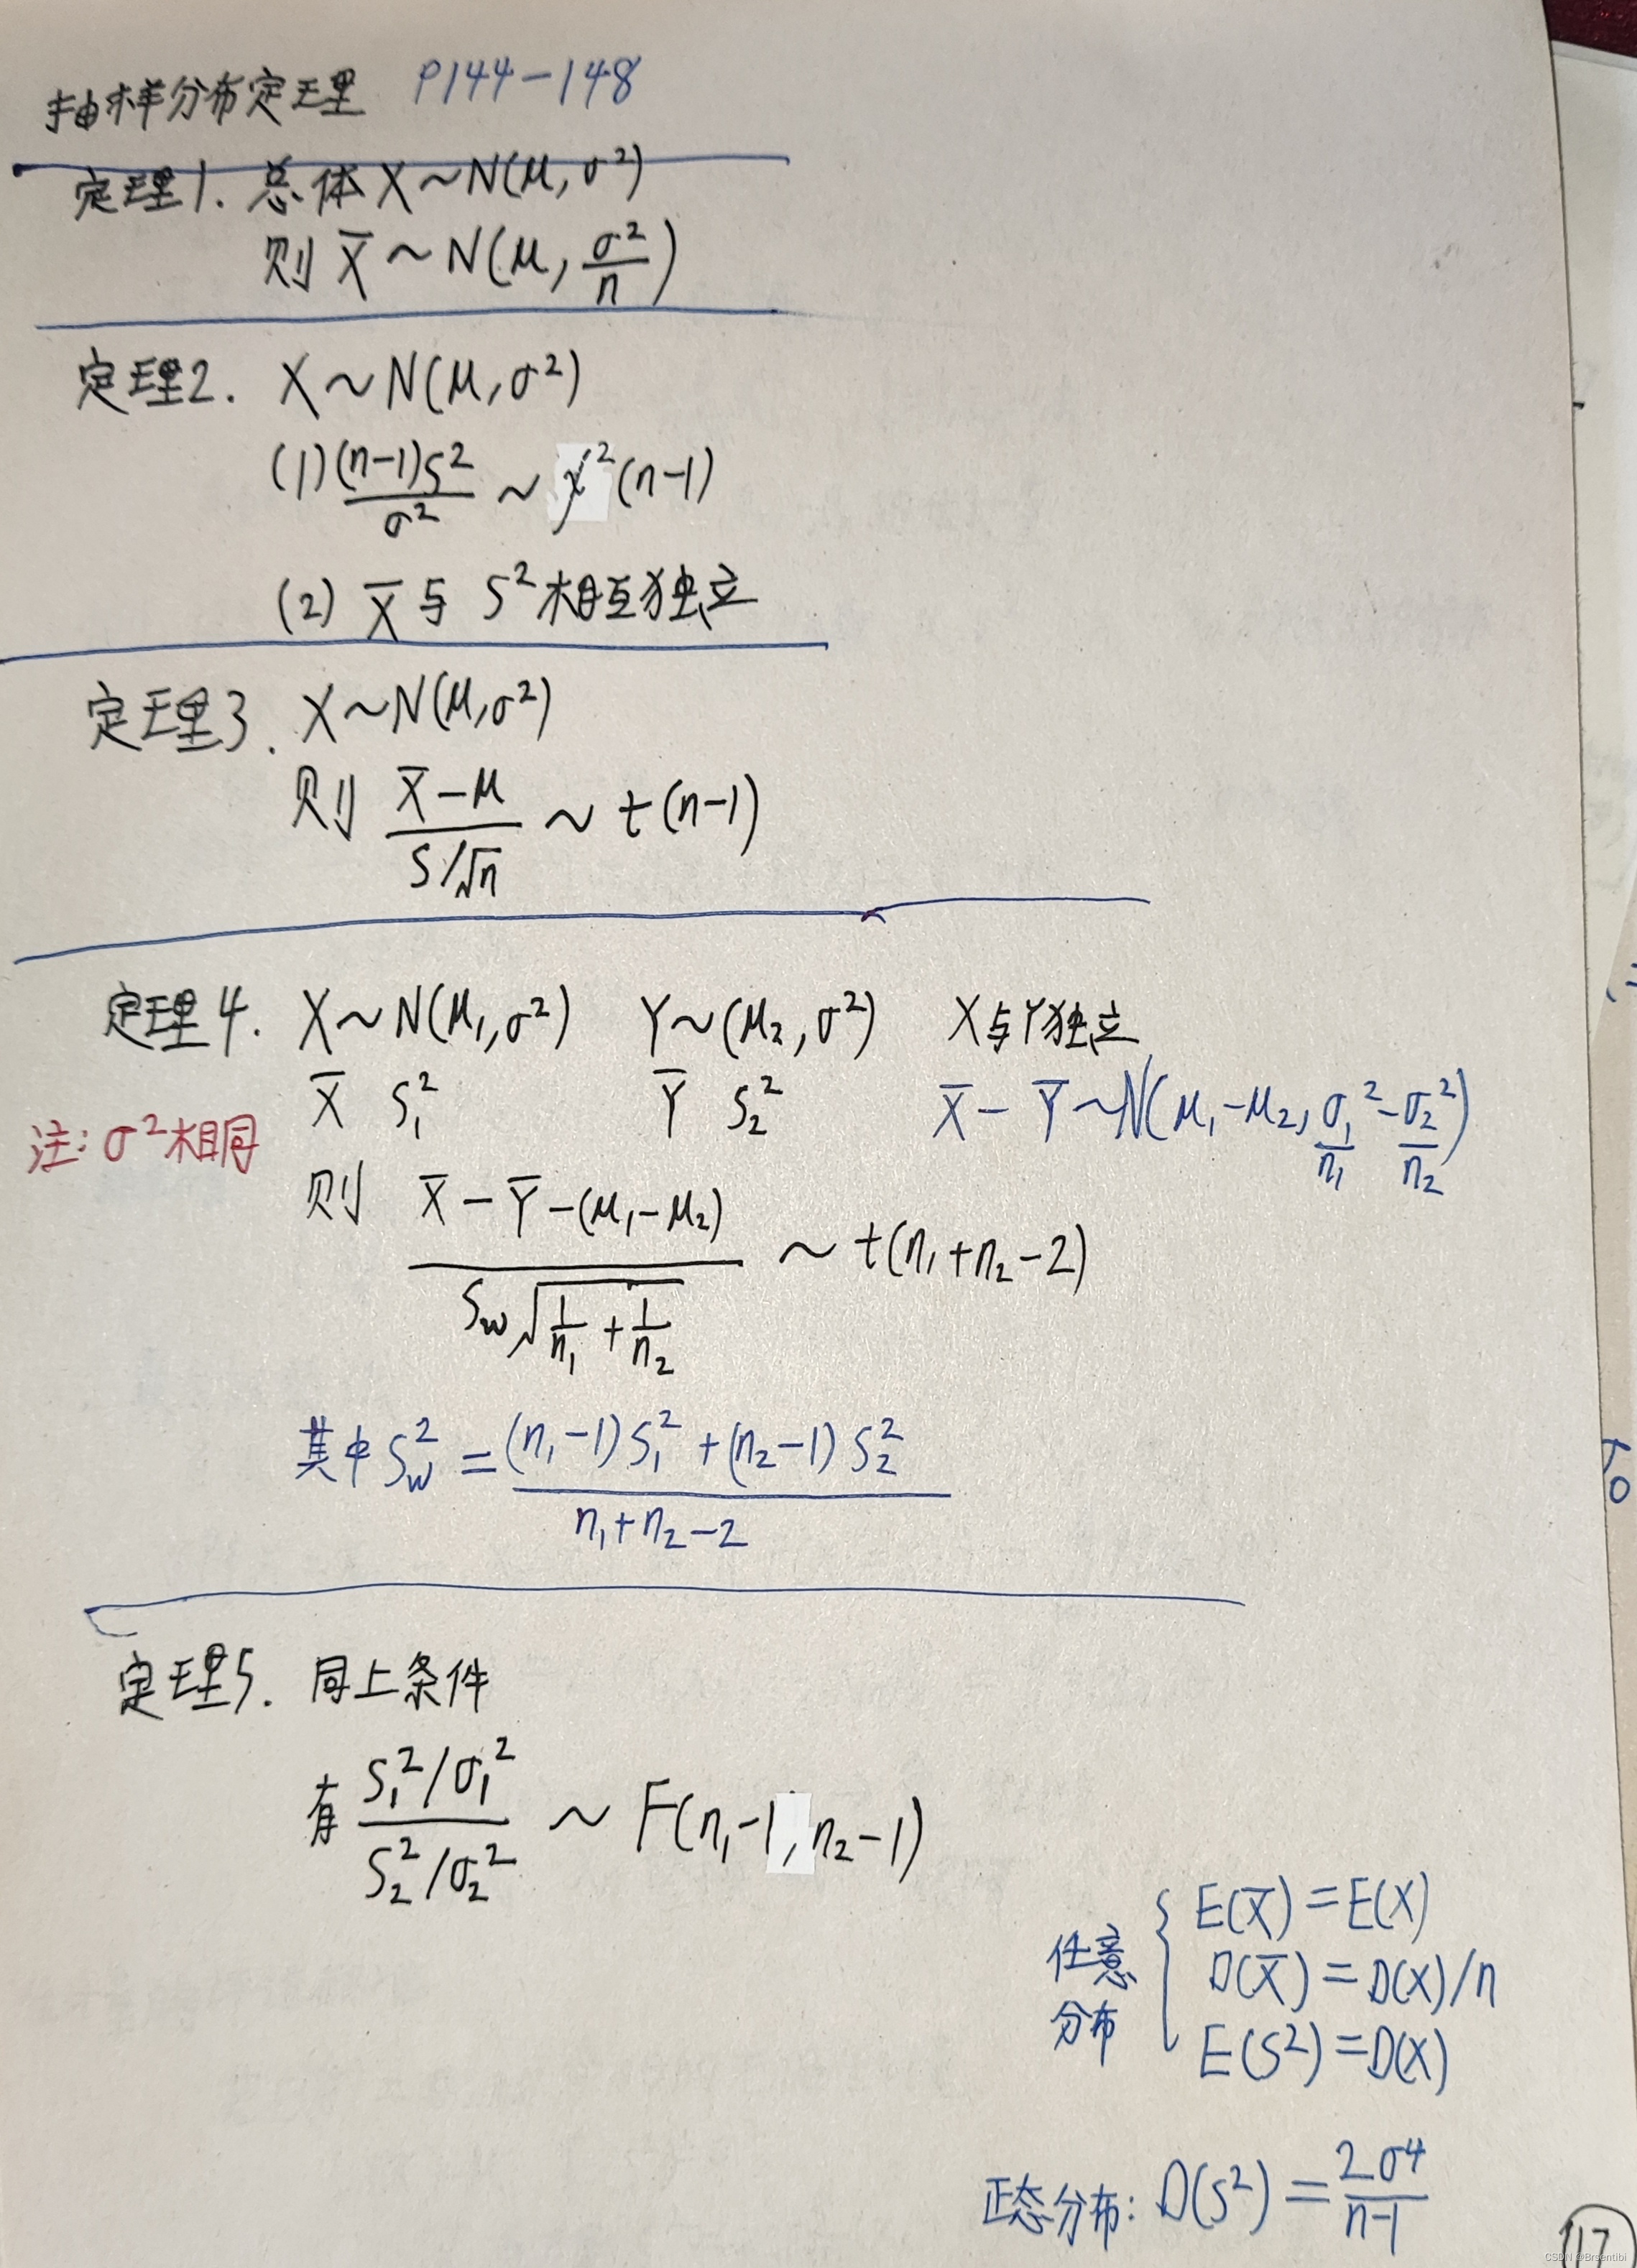 抽样分布定理 P144-148
定理1. 总体 X~N(μ, σ²)
则 X̄ ~ N(μ, σ²/n)
定理2. X~N(μ, σ²)
(1) (n-1)S²/σ² ~ χ²(n-1)
(2) X̄ 与 S² 相互独立
定理3. X~N(μ, σ²)
则 (X̄-μ)/(S/√n) ~ t(n-1)
定理4. X~N(μ₁, σ²) Y~(μ₂, σ²) X与Y独立
X̄ S₁² Ȳ S₂² X̄ - Ȳ ~ N(μ₁-μ₂, σ₁²/n₁ - σ₂²/n₂)
注: σ²相同
则 (X̄ - Ȳ - (μ₁-μ₂))/(Sw√(1/n₁ + 1/n₂)) ~ t(n₁+n₂-2)
其中 Sw² = ((n₁-1)S₁² + (n₂-1)S₂²)/(n₁+n₂-2)
定理5. 同上条件
有 (S₁²/σ₁²)/(S₂²/σ₂²) ~ F(n₁-1, n₂-1)
任意分布 { E(X̄) = E(X)
D(X̄) = D(X)/n
E(S²) = D(X)
正态分布: D(S²) = 2σ⁴/(n-1)
117
CSDN @Brsentibi